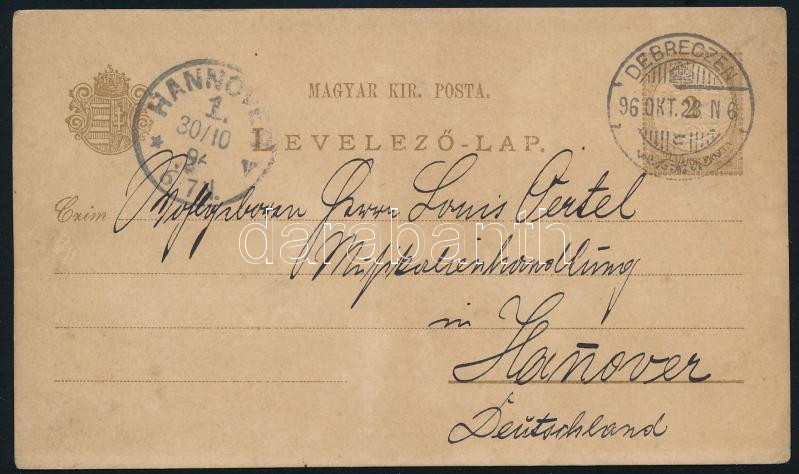 MAGYAR KIR. POSTA.
LEVELEZŐ-LAP.
HANNOVER
1.
30/10
DEBRECZEN
96 OKT. 28 N 6
2
Czim
Wohlgeboren Herrn Louis Oertel
Musikalienhandlung
in
Hañover
Deutschland
darabanth